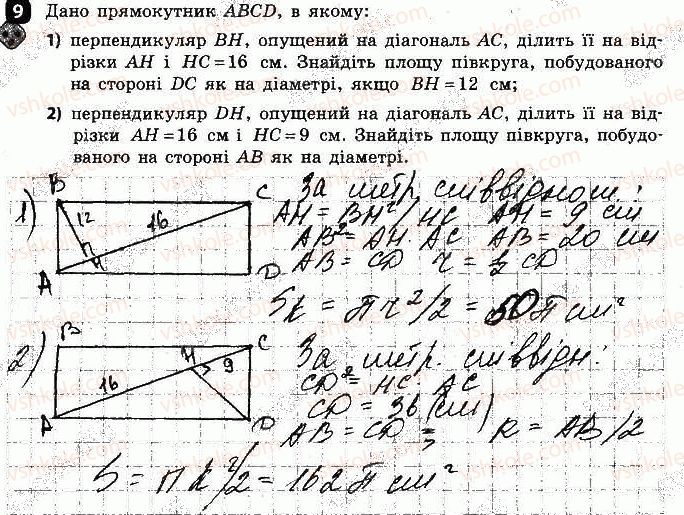 9 Дано прямокутник ABCD, в якому:
1) перпендикуляр BH, опущений на діагональ AC, ділить її на від-
різки AH і HC=16 см. Знайдіть площу півкруга, побудованого
на стороні DC як на діаметрі, якщо BH=12 см;
2) перпендикуляр DH, опущений на діагональ AC, ділить її на від-
різки AH=16 см і HC=9 см. Знайдіть площу півкруга, побудо-
ваного на стороні AB як на діаметрі.
1) B C 12 16 H A D
За метр. співвіднош:
AH = BH²/HC AH = 9 см
AB² = AH · AC AB = 20 см
AB = CD r = ½ CD
Sк = πr²/2 = 50π см²
2) B H C 16 9 A D
За метр. співвідн:
CD² = HC AC
CD = 36 (см)
AB = CD = R = AB/2
S = πR²/2 = 162π см²